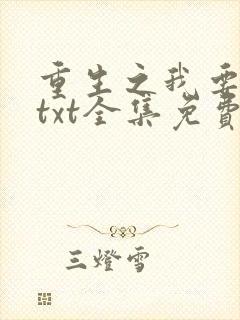 重生之我要
txt全集免費
三燈雪